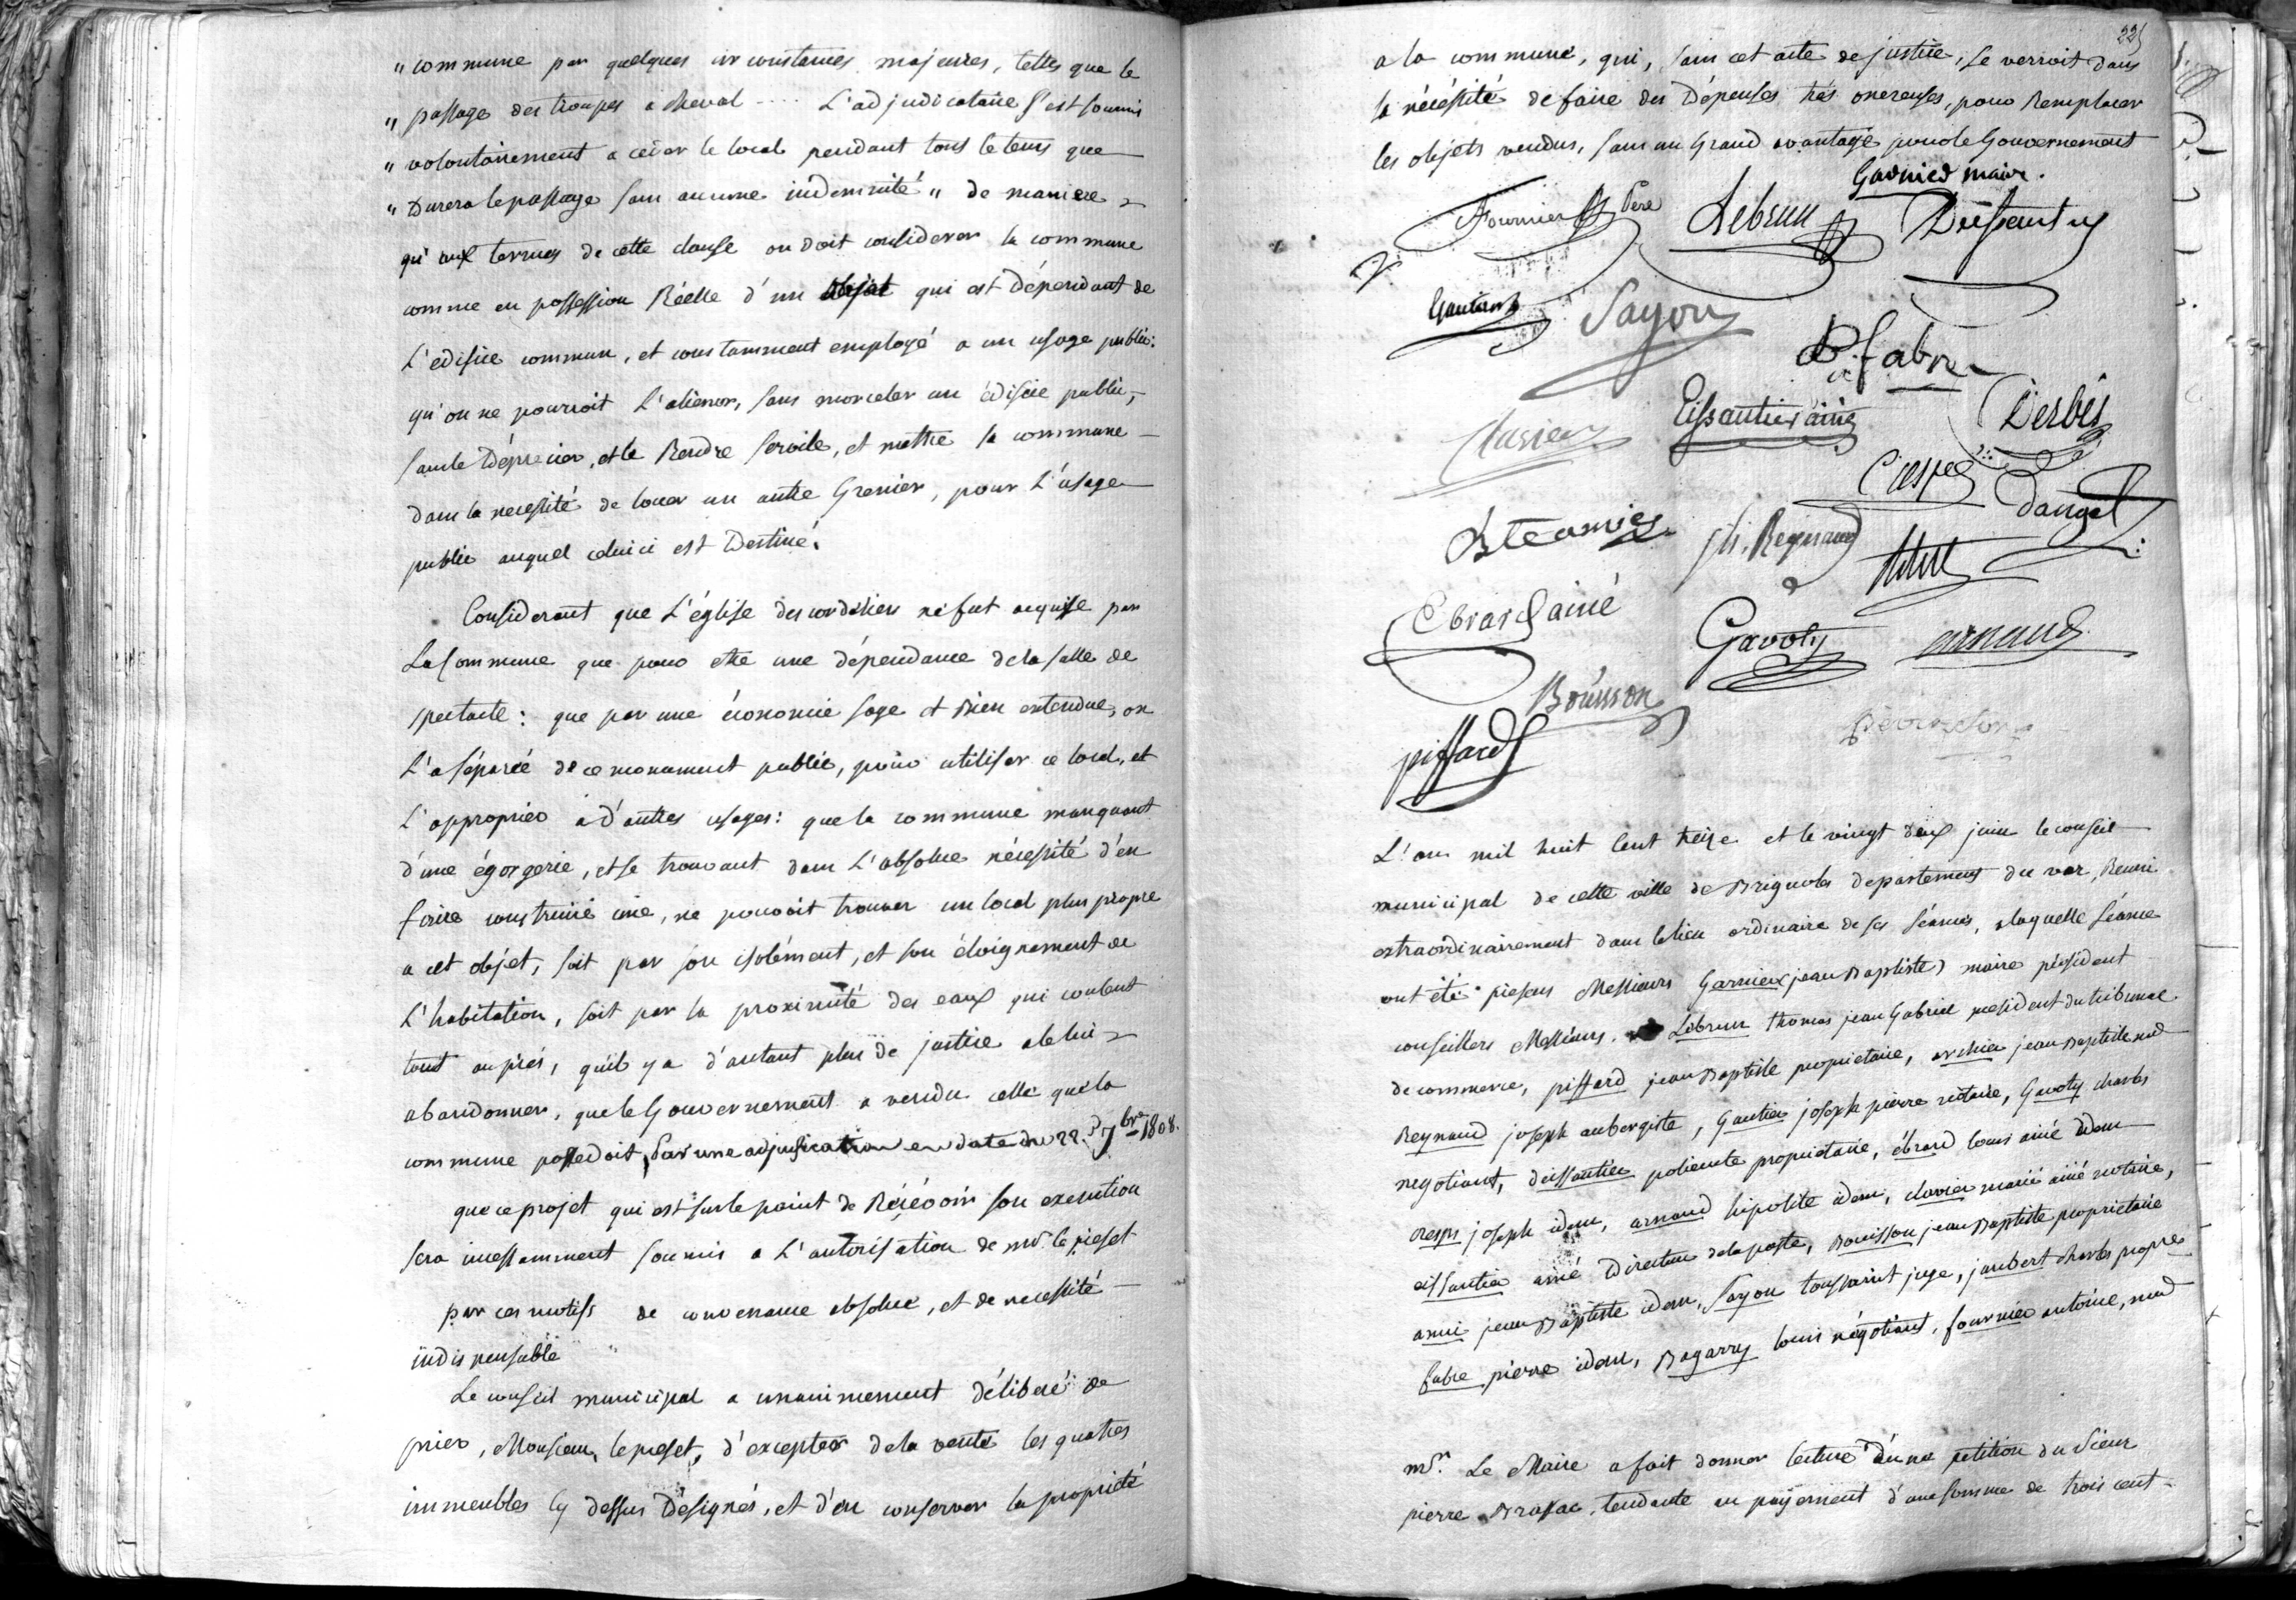 " commune par quelques circonstances majeures, telles que le
" passage des troupes a cheval .... L'adjudicataire s'est soumis
" volontairement a ceder le local pendant tout le tems que
" Durera le passage sans aucune indemnité " de maniere
qu'aux termes de cette clause on doit considerer la commune
comme en possession Réelle d'un objet qui est Dépendant de
L'edifice commun, et constamment employé a un usage public:
qu'on ne pourroit L'aliener, sans morceler un édifice public,
sans le Déprecier, et le Rendre servile, et mettre la commune
dans la necessité de louer un autre Grenier, pour L'usage
public auquel celui ci est Destiné.
Considerant que L'église des cordeliers ne fut acquise par
La Commune que pour etre une dépendance de la salle de
spectacle: que par une économie sage et bien entendue, on
L'a séparée de ce monument public, pour utiliser ce local, et
L'approprier a d'autres usages: que la commune manquant
d'une égorgerie, et se trouvant dans L'absolue nécessité d'en
faire construire une, ne pouvoit trouver un local plus propre
a cet objet, soit par son isolément, et son éloignement de
L'habitation, soit par la proximité des eaux qui coulent
tout auprés, qu'il y a d'autant plus de justice a le lui
abandonner, que le Gouvernement a vendu celle que la
commune possedoit, Par une adjudication en date du 22 7bre 1808.
que ce projet qui est sur le point de Recevoir son execution
sera incessamment soumis a L'autorisation de mr. le prefet
par ces motifs de convenance absolue, et de necessité
indispensable
Le conseil municipal a unanimement déliberé de
prier, Monsieur le prefet, d'excepter de la vente les quatres
immeubles cy dessus Désignés, et d'en conserver la propriété
225
a la commune, qui, sans cet acte de justice, se verroit dans
la nécessité de faire des Dépenses trés onereuses, pour Remplacer
les objets vendus, sans un Grand avantage pour le Gouvernement
Garnier maire.
Fournier Pere Lebrun Deissautier
Gautier Sayou
P. fabre
Clavier Eissautier ainé Derbés
Crespe
Bte amic jh. Reynaud Dangel
Ebrard ainé
Gavoty arnaud
Bouisson
piffard
L'an mil huit Cent treize et le vingt deux juin le conseil
municipal de cette ville de Brignoles departement du var, Reuni
extraordinairement dans le lieu ordinaire de ses séances, a laquelle séance
ont été presens Messieurs Garnier (jean Baptiste) maire président
conseillers Messieurs. Lebrun thomas jean Gabriel president du tribunal
de commerce, piffard jean Baptiste proprietaire, archier jean Baptiste md
Reynaud joseph aubergiste, Gautier joseph pierre notaire, Gavoty charles
negotiant, deissautier policarte proprietaire, ébrard louis ainé idem
crespe joseph idem, arnaud hipolite idem, clavier marie ainé notaire,
eissautier ainé Directeur de la poste, Bouisson jean Baptiste proprietaire
amic jean Baptiste idem, Sayou toussaint juge, jaubert charles propre
fabre pierre idem, Bagarry louis négotiant, fournier antoine, md
mr. Le Maire a fait donner lecture d'une petition du Sieur
pierre Brassac, tendante au payement d'une somme de trois cent